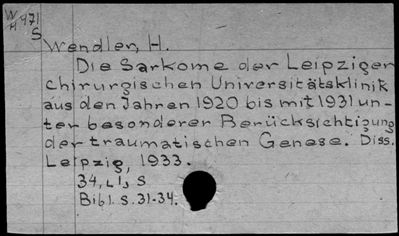 W
H 471
S
Wendler, H.
Die Sarkome der Leipziger
chirurgischen Universitätsklinik
aus den Jahren 1920 bis mit 1931 un-
ter besonderer Berücksichtigung
der traumatischen Genese. Diss.
Leipzig, 1933.
34, L1, S
Bibl. S. 31-34.